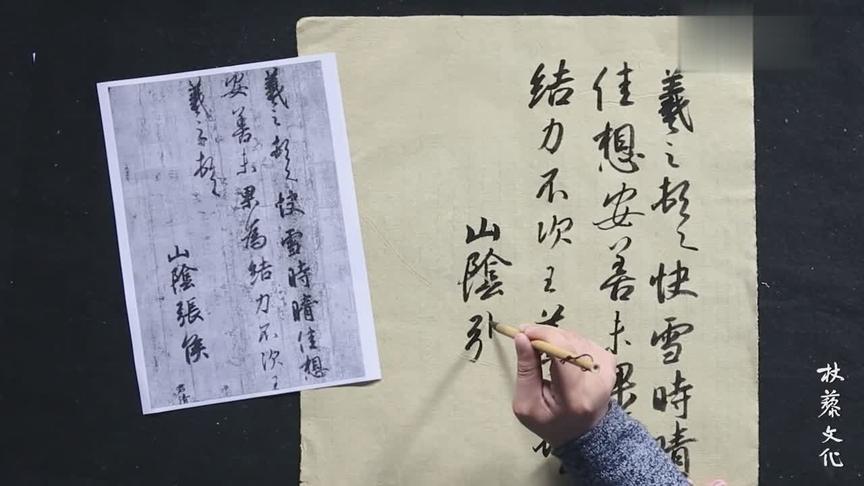 羲之頓首快雪時晴佳想
安善未果為結力不次王
羲之頓首
山陰張侯
羲之頓首快雪時晴
佳想安善未果
結力不次王
山陰
杖藜文化